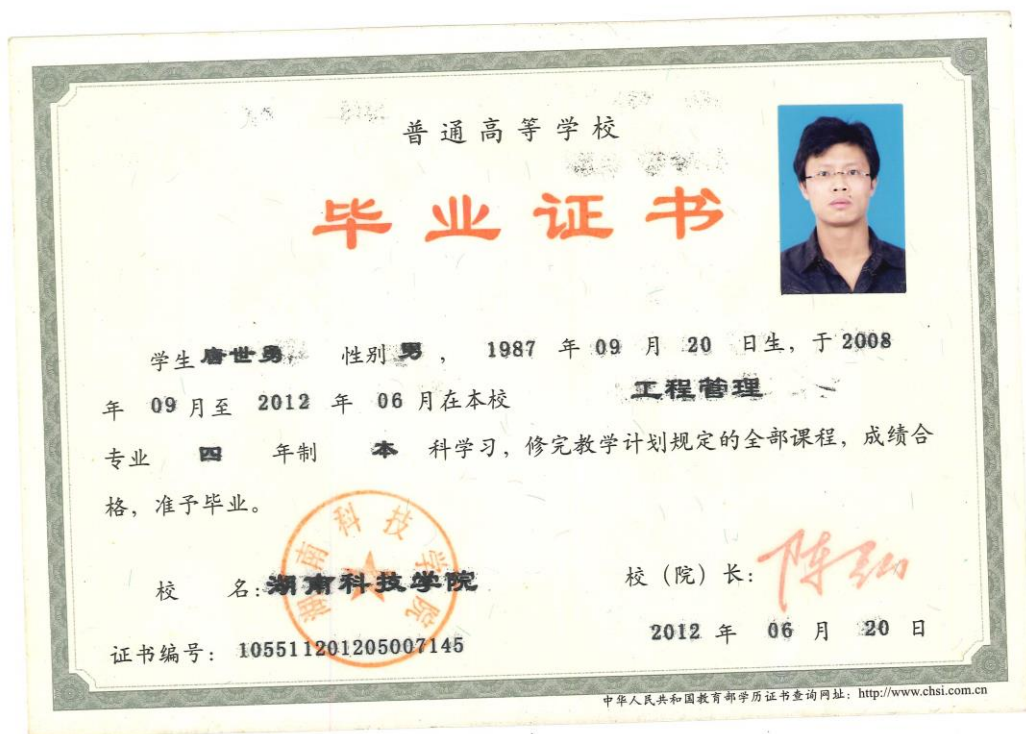 普通高等学校
毕业证书
学生 唐世勇, 性别 男 , 1987 年 09 月 20 日生, 于 2008
年 09 月至 2012 年 06 月在本校 工程管理
专业 四 年制 本 科学习, 修完教学计划规定的全部课程, 成绩合
格, 准予毕业。
湖南科技学院
校 名: 湖南科技学院 校（院）长:
证书编号: 105511201205007145 2012 年 06 月 20 日
中华人民共和国教育部学历证书查询网址: http://www.chsi.com.cn